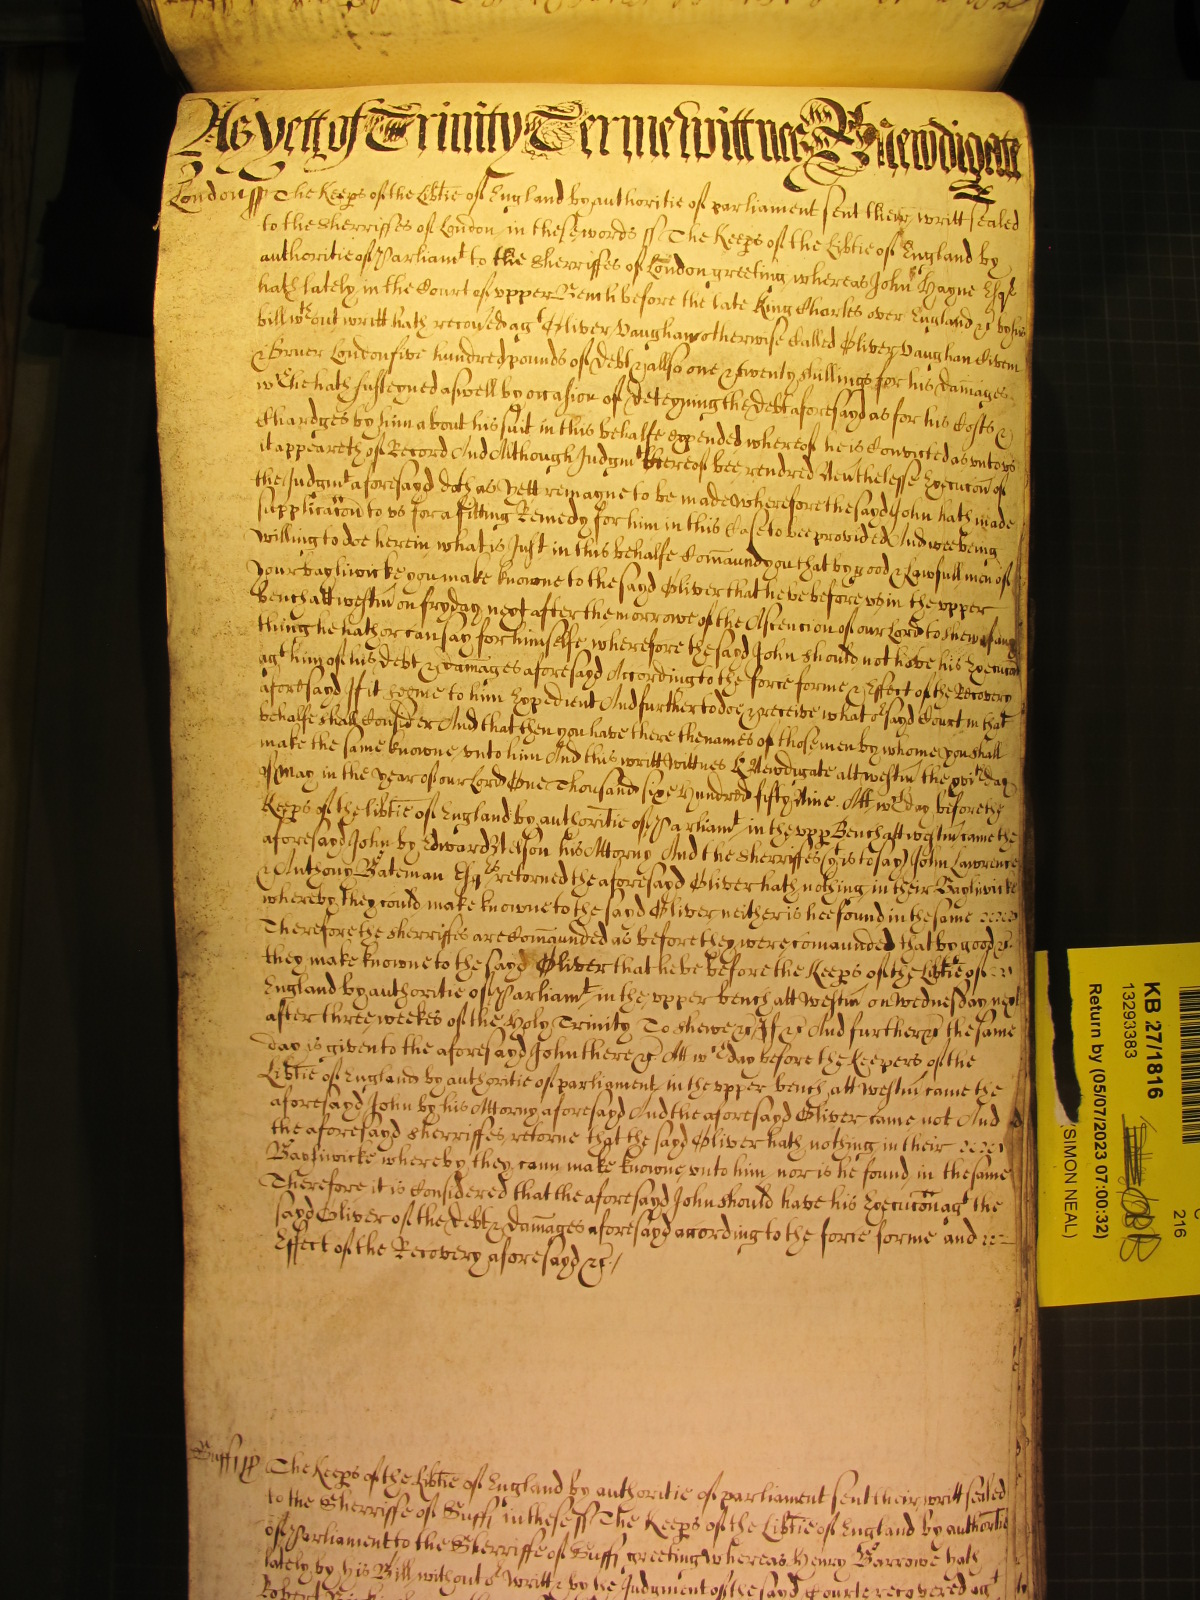 As yett of Trinity Terme wittnes R Newdigate
London ss The Keeps of the Libtie of England by authoritie of parliament sent their writt sealed
to the Sherriffes of London in these words ss The Keeps of the Libtie of England by
authoritie of Parliamt to the Sherriffes of London greeting whereas John Hayne Esqr
hath lately in the Court of upper Bench before the late King Charles over England &c by his
bill wthout writt hath recoved agt Oliver Vaughan otherwise Called Oliver Vaughan Citizen
& London five hundred pounds of debt & allso one & twenty shillings for his damages
wch he hath susteyned aswell by occasion of deteyning the debt aforesayd as for his Costs &
Chardges by him about his suit in this behalfe expended whereof he is Convicted as unto us
it appeareth of Record And Although Judgmt thereof bee rendred Neuthelesse Execucon of
the Judgmt aforesayd doth as yett remayne to be made wherefore the sayd John hath made
supplicacon to us for a fitting Remedy for him in this Case to bee provided And wee being
willing to doe herein what is Just in this behalfe Comaund you that by good & Lawfull men of
your bayliwicke you make knowne to the sayd Oliver that he be before us in the upper
Bench att westm on fryday next after the morrowe of the Ascencion of our Lord to shew if any
thing he hath or can say for himselfe wherefore the sayd John should not have his Execucon
agt him of his debt & damages aforesayd According to the force forme & Effect of the Recovery
aforesayd If it seeme to him Expedient And further to doe & receive what ye sayd Court in that
behalfe shall Consider And that then you have there the names of those men by whome you shall
make the same knowne unto him And this writt Wittnes R Newdigate att westm the xvith day
of May in the year of our Lord One Thousand six Hundred fifty Nine. Att wch day before the
Keeps of the libtie of England by authoritie of Parliamt in the upp Bench att westm came the
aforesayd John by Edward Nelson his Attorny And the Sherriffes (yt is to say) John Lawrence
& Anthony Bateman Esqrs retorned the aforesayd Oliver hath nothing in their Bayliwicke
whereby they could make knowne to the sayd Oliver neither is hee found in the same
Therefore the sherriffes are Comaunded as before they were comaunded that by good &c
they make knowne to the sayd Oliver that he be before the Keeps of the Libtie of
England by authoritie of Parliamt in the upper bench att Westm on Wednesday next
after three weekes of the Holy Trinity To shewe &c If &c And further &c the same
day is given to the aforesayd John there &c Att wch day before the Keepers of the
Libtie of England by authoritie of parliament in the upper bench att Westm came the
aforesayd John by his Attorny aforesayd And the aforesayd Oliver came not And
the aforesayd sherriffes retorne that the sayd Oliver hath nothing in their
Bayliwicke whereby they cann make knowne unto him nor is he found in the same
Therefore it is Considered that the aforesayd John should have his Execucon agt the
sayd Oliver of the debt & damages aforesayd according to the force forme and
Effect of the Recovery aforesayd &c /
Suff ss The Keeps of the Libtie of England by authoritie of parliament sent their writt sealed
to the Sherriffe of Suff in these ss The Keeps of the Libtie of England by authoritie
of Parliament to the Sherriffe of Suff greeting Whereas Henry Barrowe hath
lately by his Bill without or Writt & by the Judgment of the sayd Courte recovered agt
Robert
KB 27/1816
13293383
Return by (05/07/2023 07:00:32)
(SIMON NEAL)
216